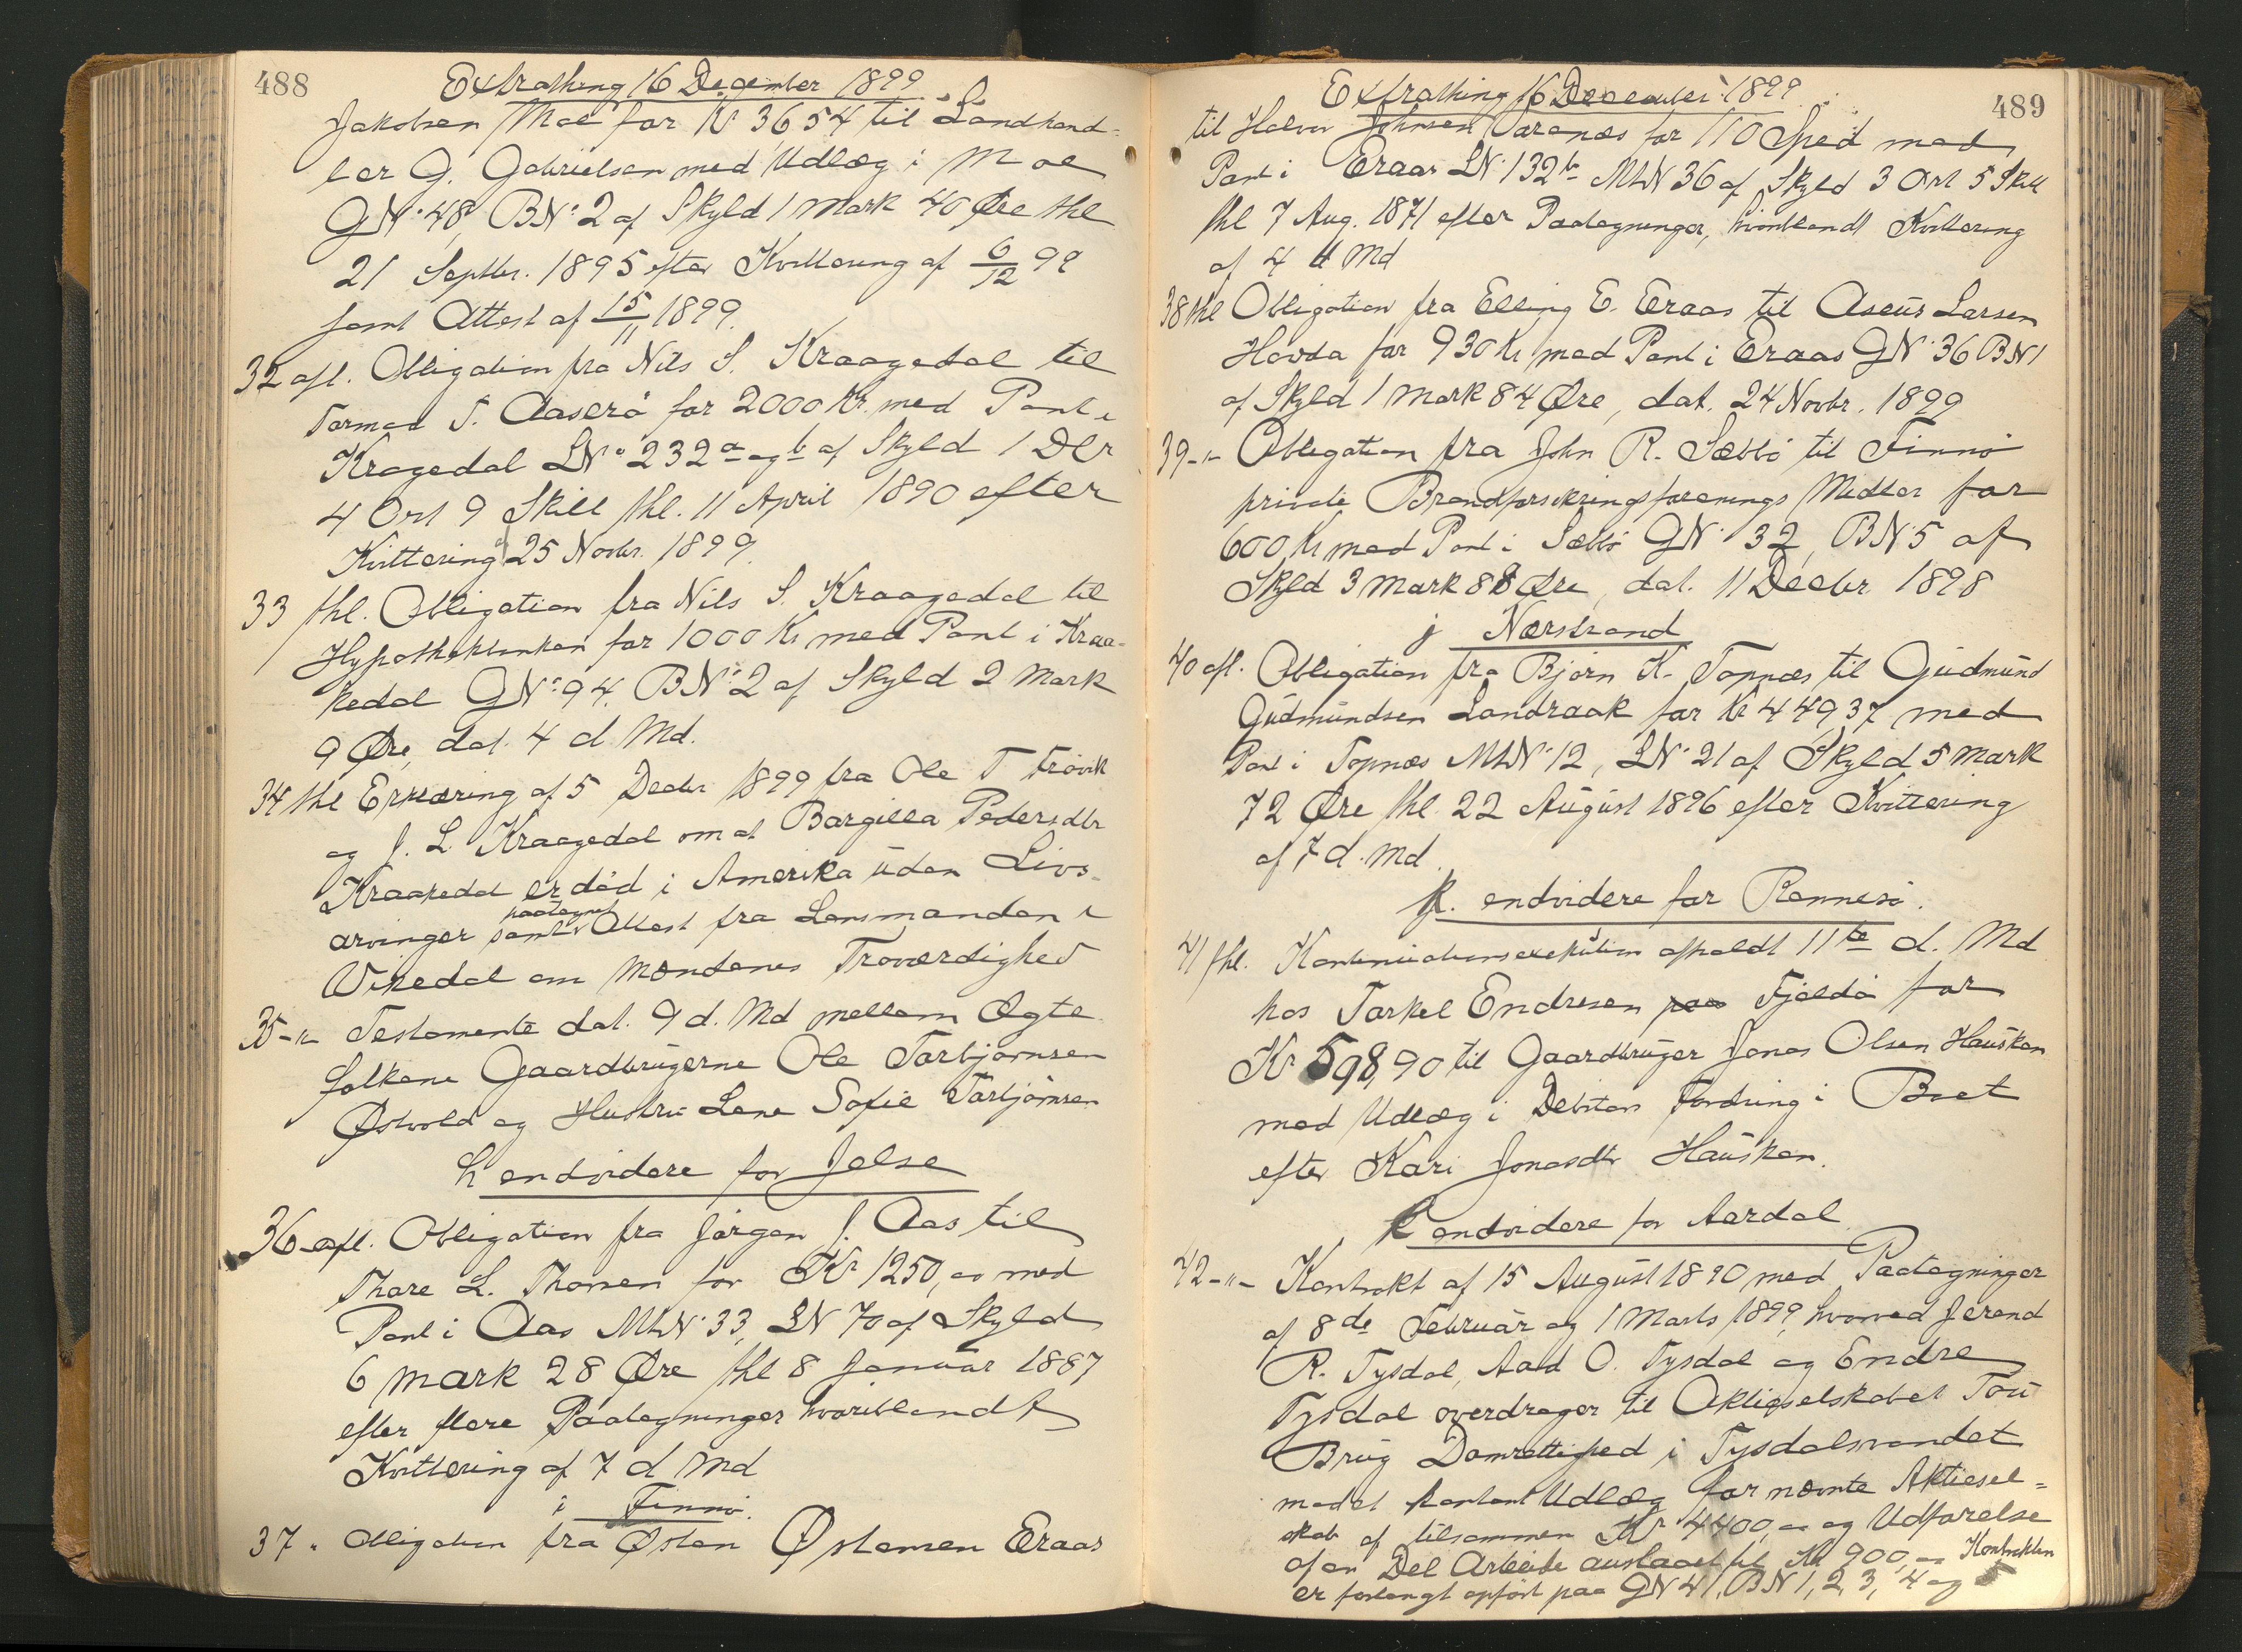 488
Extrathing 16 December 1899
Jakobsen Moe for Kr 36 54 til Landhand-
ler G. Gabrielsen med Udlæg i Moe
GN: 48, BN: 2 af Skyld 1 Mark 40 Øre thl
21 Septbr. 1895 efter Kvittering af 6/12 99
samt Attest af 15/11 1899.
32 afl. Obligation fra Nils S. Kraagedal til
Tormod T. Aaserö for 2000 Kr. med Pant i
Kragedal LN: 232 a og b af Skyld 1 Dlr
4 Ort 9 Skill thl. 11 April 1890 efter
Kvittering af 25 Novbr. 1899.
33 thl. Obligation fra Nils S. Kraagedal til
Hypothekbanken for 1000 Kr med Pant i Kraa-
kedal GN: 94, BN: 2 af Skyld 2 Mark
9 Øre, dat. 4 d. Md.
34 thl Erklæring af 5 Decbr 1899 fra Ole T Trövik
og J. L. Kraagedal om at Bargilla Pedersdtr
Kraakedal er död i Amerika uden Livs-
arvinger samt paategnet Attest fra Lensmanden i
Vikedal om Mændenes Troværdighed
35 -"- Testamente dat. 9 d. Md mellem Ægte
folkene Gaardbrugerne Ole Torbjörnsen
Østvold og Hustru Lene Sofie Torbjörnsen
h endvidere for Jelse
36 afl. Obligation fra Jörgen J. Aas til
Thore L. Thorsen for Kr 1250,00 med
Pant i Aas MtN: 33, LN 70 af Skyld
6 Mark 28 Øre thl 8 Januar 1887
efter flere Paategninger hvoriblandt
Kvittering af 7 d Md
i Finnö.
37 " Obligation fra Østen Østensen Eraas
489
Extrathing 16 December 1899
til Halvor Johnsen Varanes for 110 Spd med
Pant i Eraas LN: 132 b MtN 36 af Skyld 3 Ort 5 Skill
thl 7 Aug. 1871 efter Paategninger, hvoriblandt Kvittering
af 4 d Md
38 thl Obligation fra Elling E. Eraas til Aseus Larsen
Hovda for 930 Kr med Pant i Eraas GN: 36 BN 1
af Skyld 1 Mark 84 Øre, dat. 24 Novbr. 1899
39 -"- Obligation fra John R. Sæbbö til Finnö
private Brandforsikringsforenings Midler for
600 Kr med Pant i Sæbbö GN: 32, BN: 5 af
Skyld 3 Mark 88 Øre, dat. 11 Decbr 1898
j Nærstrand
40 afl. Obligation fra Björn K. Topnæs til Gudmund
Gudmundsen Landraak for Kr 449,37 med
Pant i Topnæs MtN: 12, LN: 21 af Skyld 5 Mark
72 Øre thl. 22 August 1896 efter Kvittering
af 7 d. Md.
k. endvidere for Rennesö.
41 thl. Kontinuationsexekution afholdt 11te d. Md
hos Torkel Endresen paa Fjeldö for
Kr 598,90 til Gaardbruger Jonas Olsen Hausken
med Udlæg i Debitors Fordring i Boet
efter Kari Jonasdtr Hausken.
l endvidere for Aardal
42 -"- Kontrakt af 15 August 1890 med Paategninger
af 8de Februar og 1 Marts 1899, hvorved Jerand
R. Tysdal, Aad O. Tysdal og Endre
Tysdal overdrager til Aktieselskabet Tou
Brug Damrettighed i Tysdalsvandet
mod et kontant Udlæg for nævnte Aktiesel-
skab af tilsammen Kr 4400,00 og Udförelse
af en Del Arbeide anslaaet til Kr 900,00 Kontrakten
er forlangt opfört paa GN 41, BN 1, 2, 3, 4 og 5